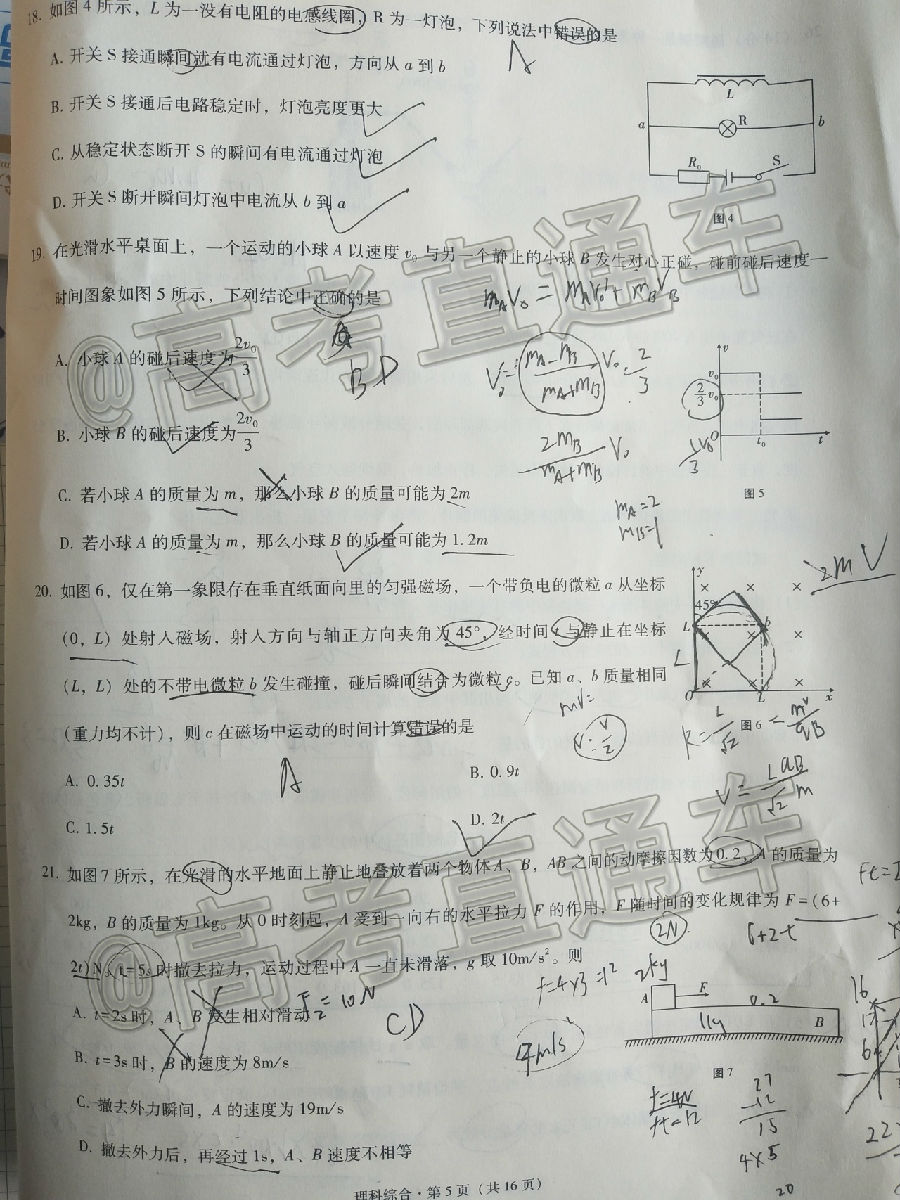 18. 如图4所示，L为一没有电阻的电感线圈，R为一灯泡，下列说法中错误的是
A. 开关S接通瞬间就有电流通过灯泡，方向从a到b
B. 开关S接通后电路稳定时，灯泡亮度更大
C. 从稳定状态断开S的瞬间有电流通过灯泡
D. 开关S断开瞬间灯泡中电流从b到a
A
L
a
R
b
R₀
S
图4
19. 在光滑水平桌面上，一个运动的小球A以速度v₀与另一个静止的小球B发生对心正碰，碰前碰后速度一
时间图象如图5所示，下列结论中正确的是
A. 小球A的碰后速度为2v₀/3
B. 小球B的碰后速度为2v₀/3
C. 若小球A的质量为m，那么小球B的质量可能为2m
D. 若小球A的质量为m，那么小球B的质量可能为1.2m
BD
v
v₀
2/3 v₀
O
t₀
t
图5
mA=2
mB=1
2mV
20. 如图6，仅在第一象限存在垂直纸面向里的匀强磁场，一个带负电的微粒a从坐标
(0，L)处射入磁场，射入方向与轴正方向夹角为45°，经时间t与静止在坐标
(L，L)处的不带电微粒b发生碰撞，碰后瞬间结合为微粒c。已知a、b质量相同
(重力均不计)，则c在磁场中运动的时间计算错误的是
A. 0.35t
B. 0.9t
C. 1.5t
D. 2t
A
y
45°
L
b
O
L
x
图6
21. 如图7所示，在光滑的水平地面上静止地叠放着两个物体A、B，AB之间的动摩擦因数为0.2，A的质量为
2kg，B的质量为1kg。从0时刻起，A受到一向右的水平拉力F的作用，F随时间的变化规律为F=(6+
2t)N，t=5s时撤去拉力，运动过程中A一直未滑落，g取10m/s²。则
A. t=2s时，A、B发生相对滑动
B. t=3s时，B的速度为8m/s
C. 撤去外力瞬间，A的速度为19m/s
D. 撤去外力后，再经过1s，A、B速度不相等
CD
2N
6+2t
2kg
A
F
0.2
1kg
B
图7
理科综合·第5页（共16页）
@高考直通车
@高考直通车